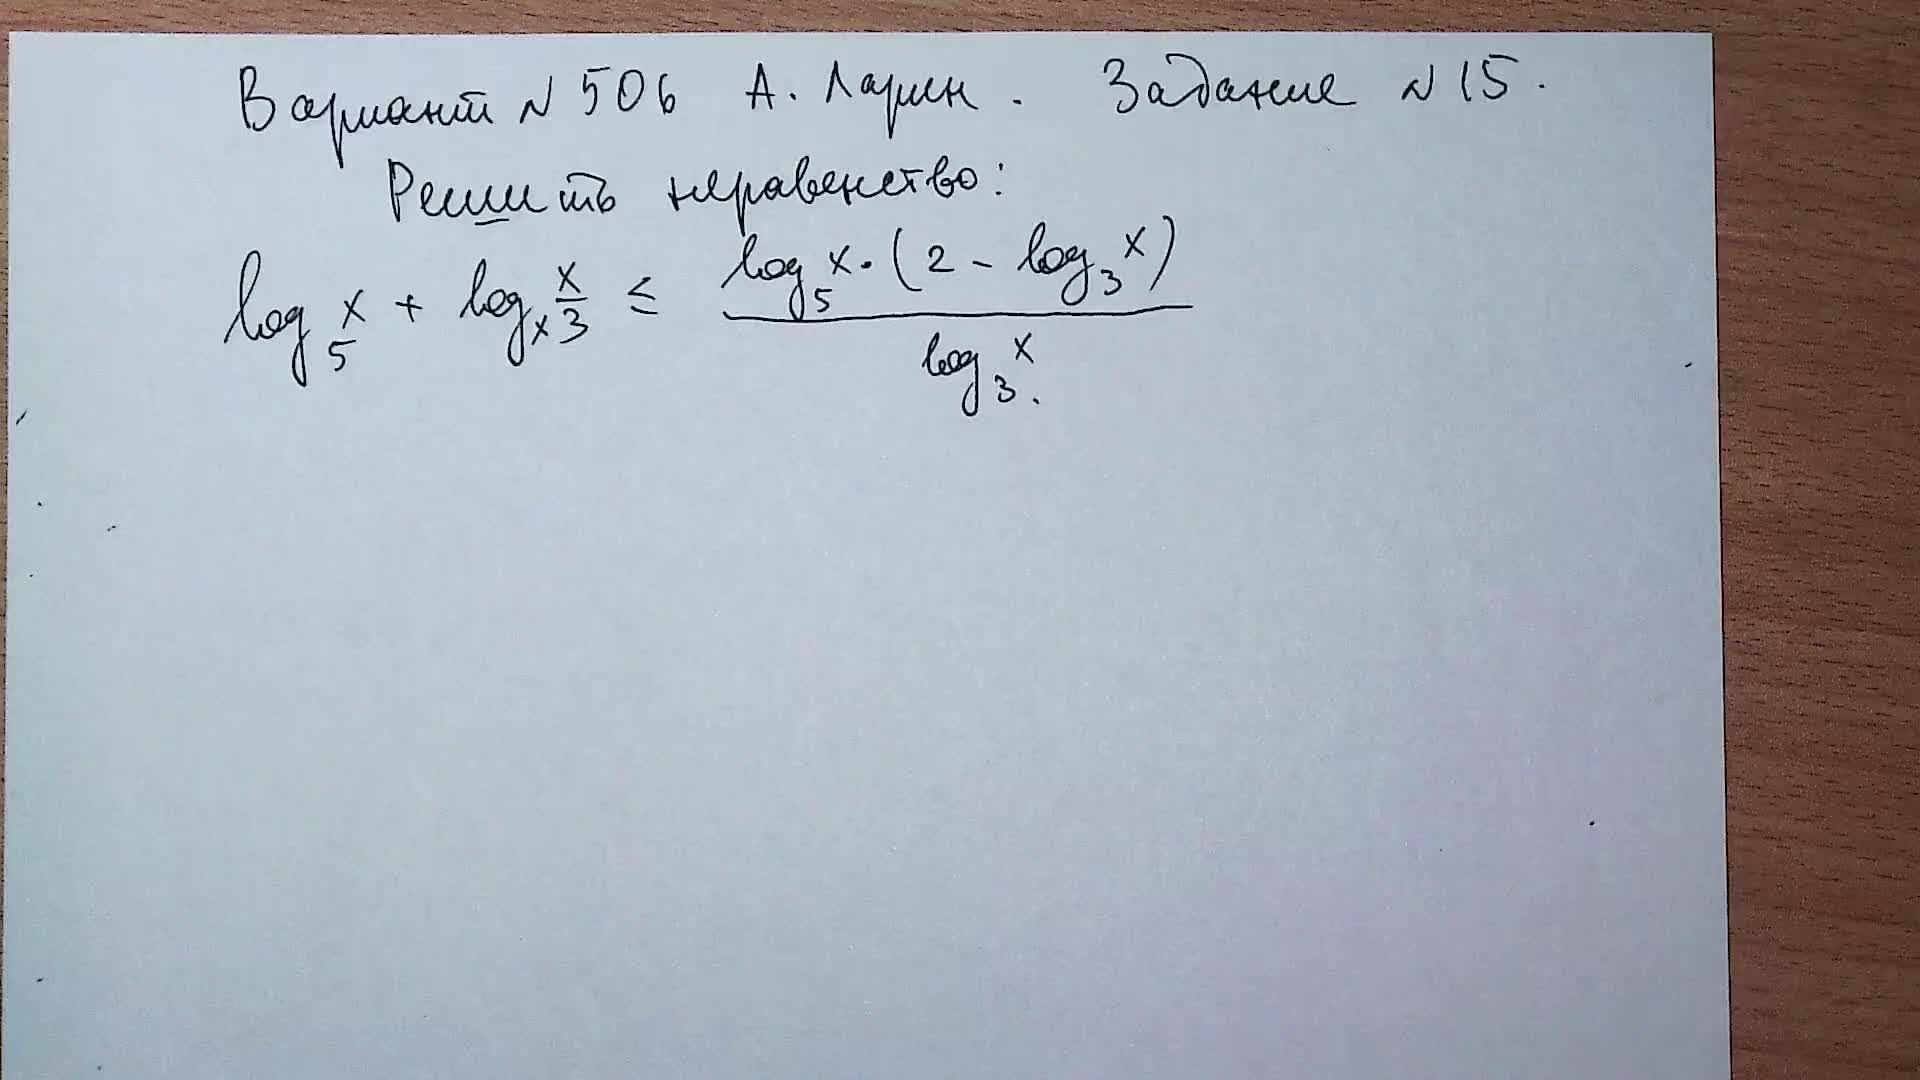 Вариант № 506 А. Ларин. Задание № 15.
Решить неравенство:
log₅ x + logₓ x/3 ≤ (log₅ x · (2 - log₃ x)) / (log₃ x).